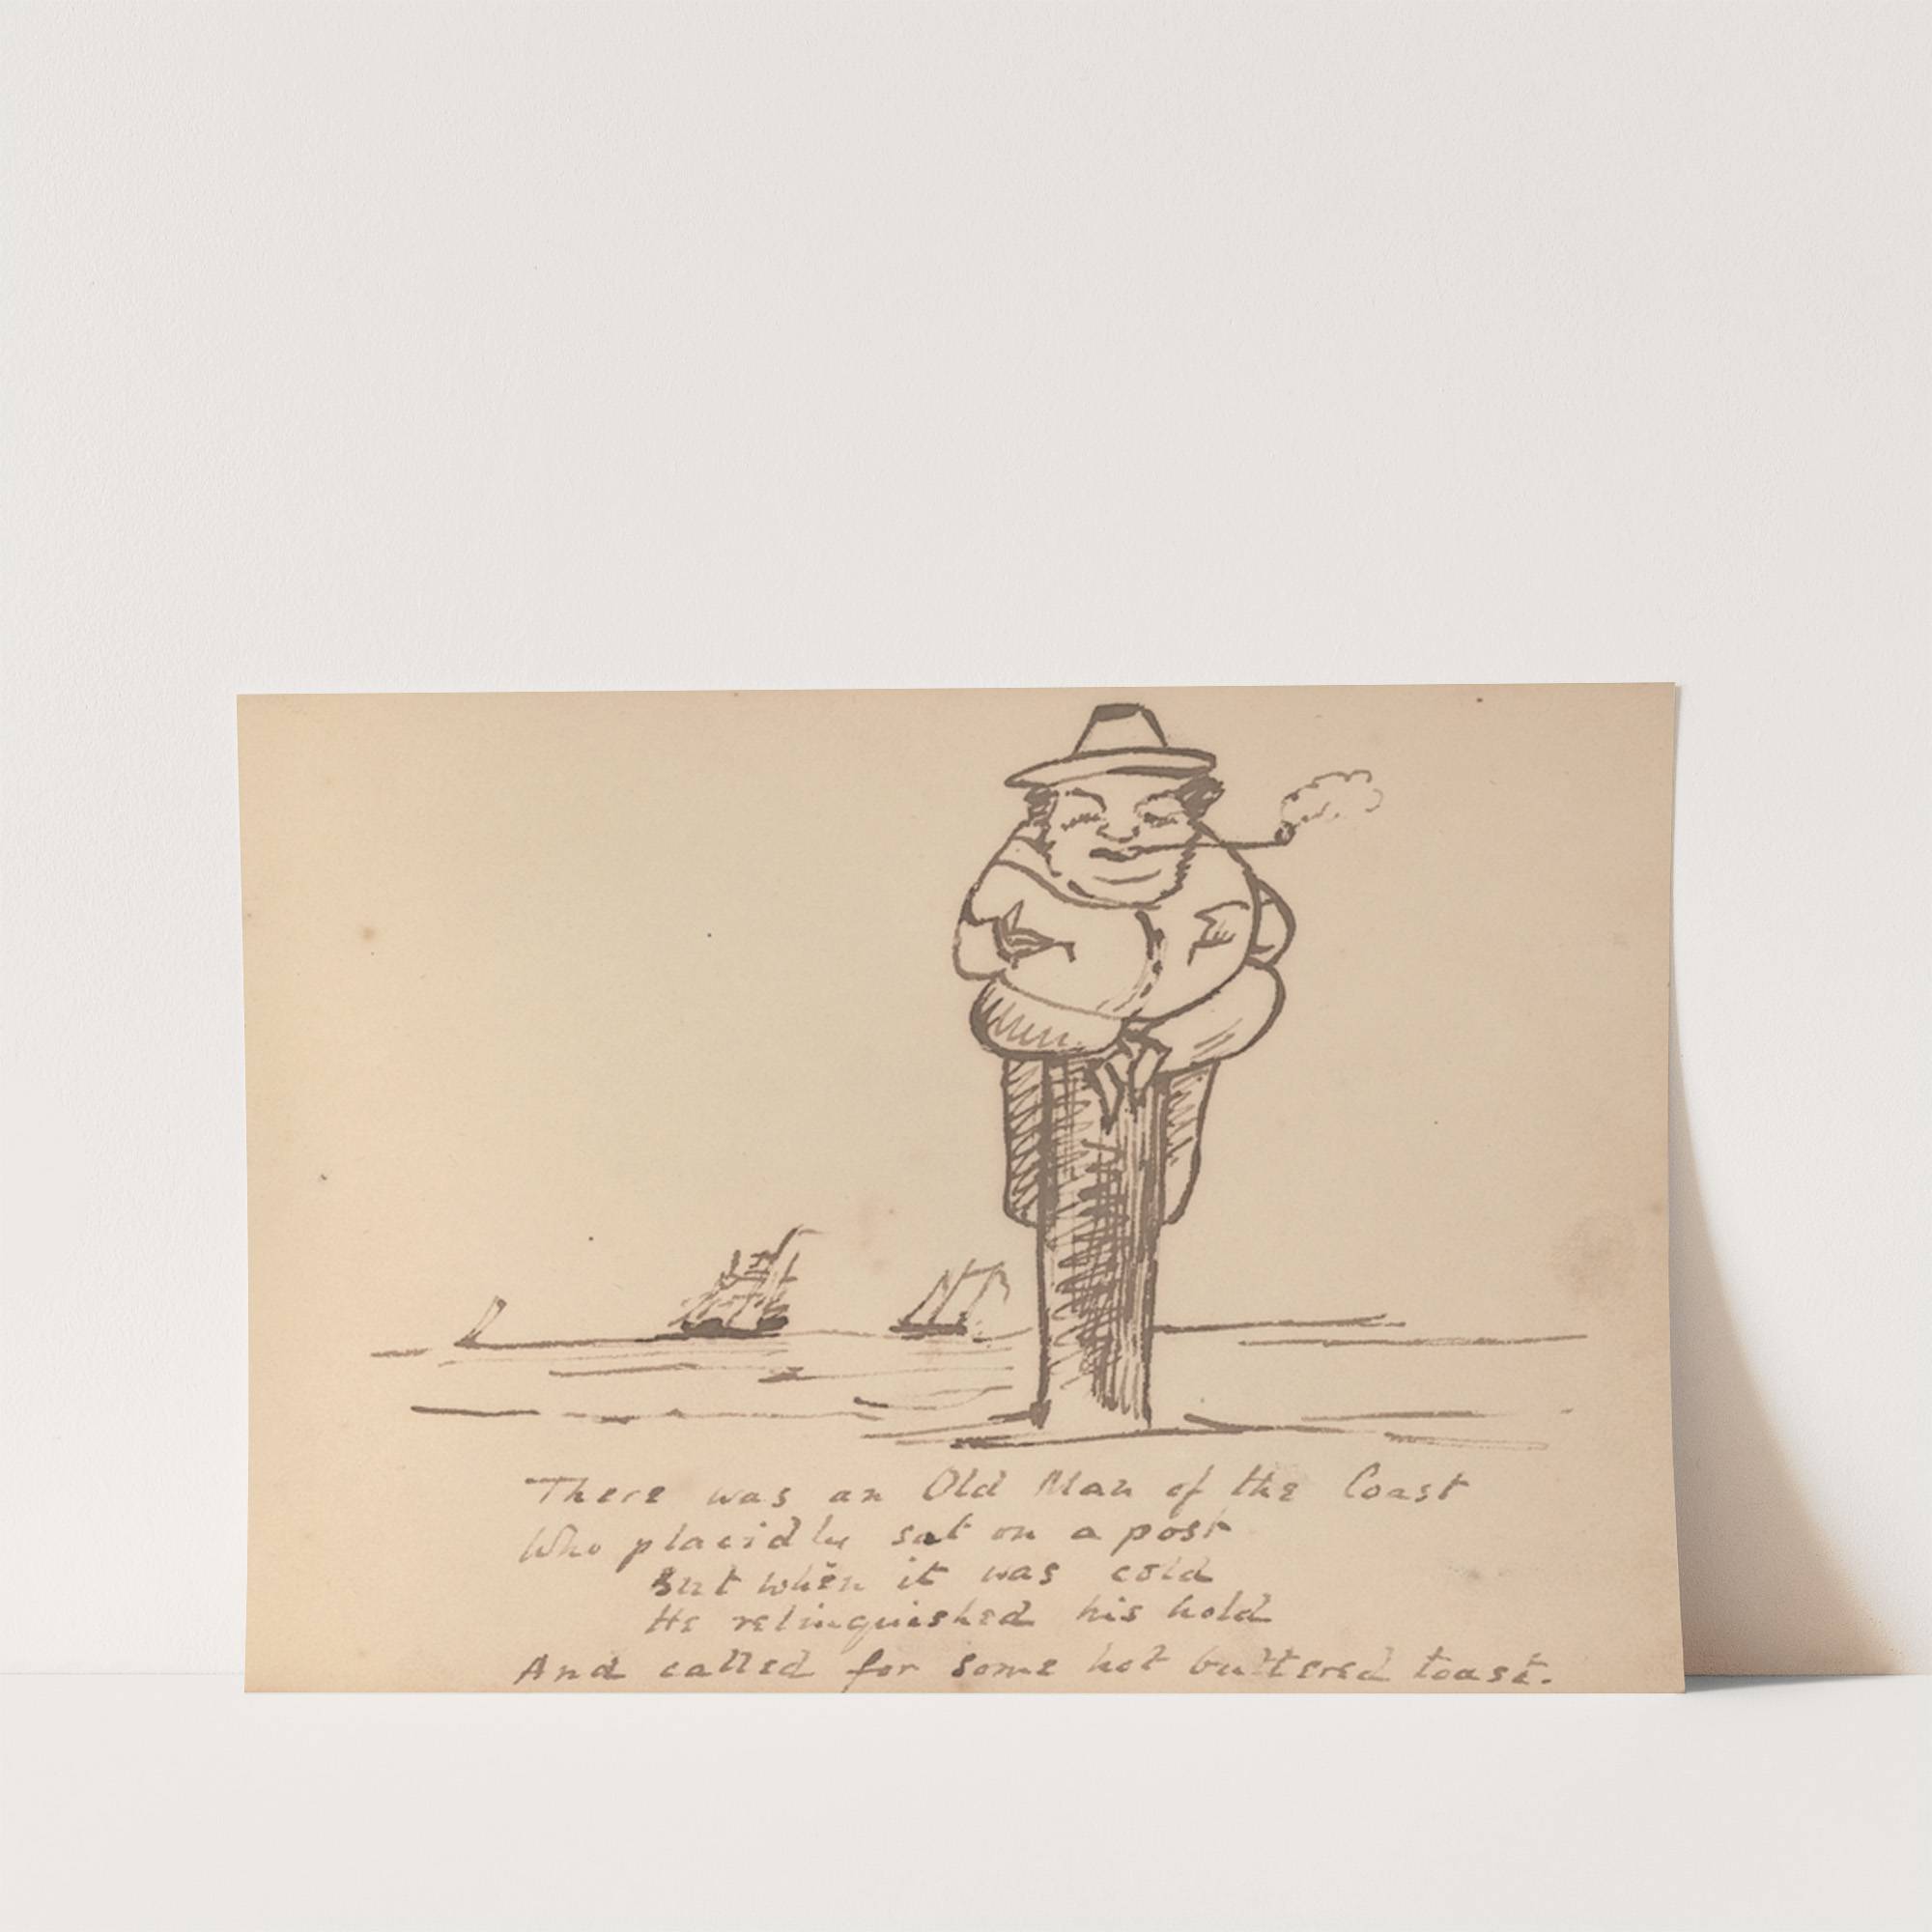 There was an Old Man of the Coast
Who placidly sat on a post
But when it was cold
He relinquished his hold
And called for some hot buttered toast.